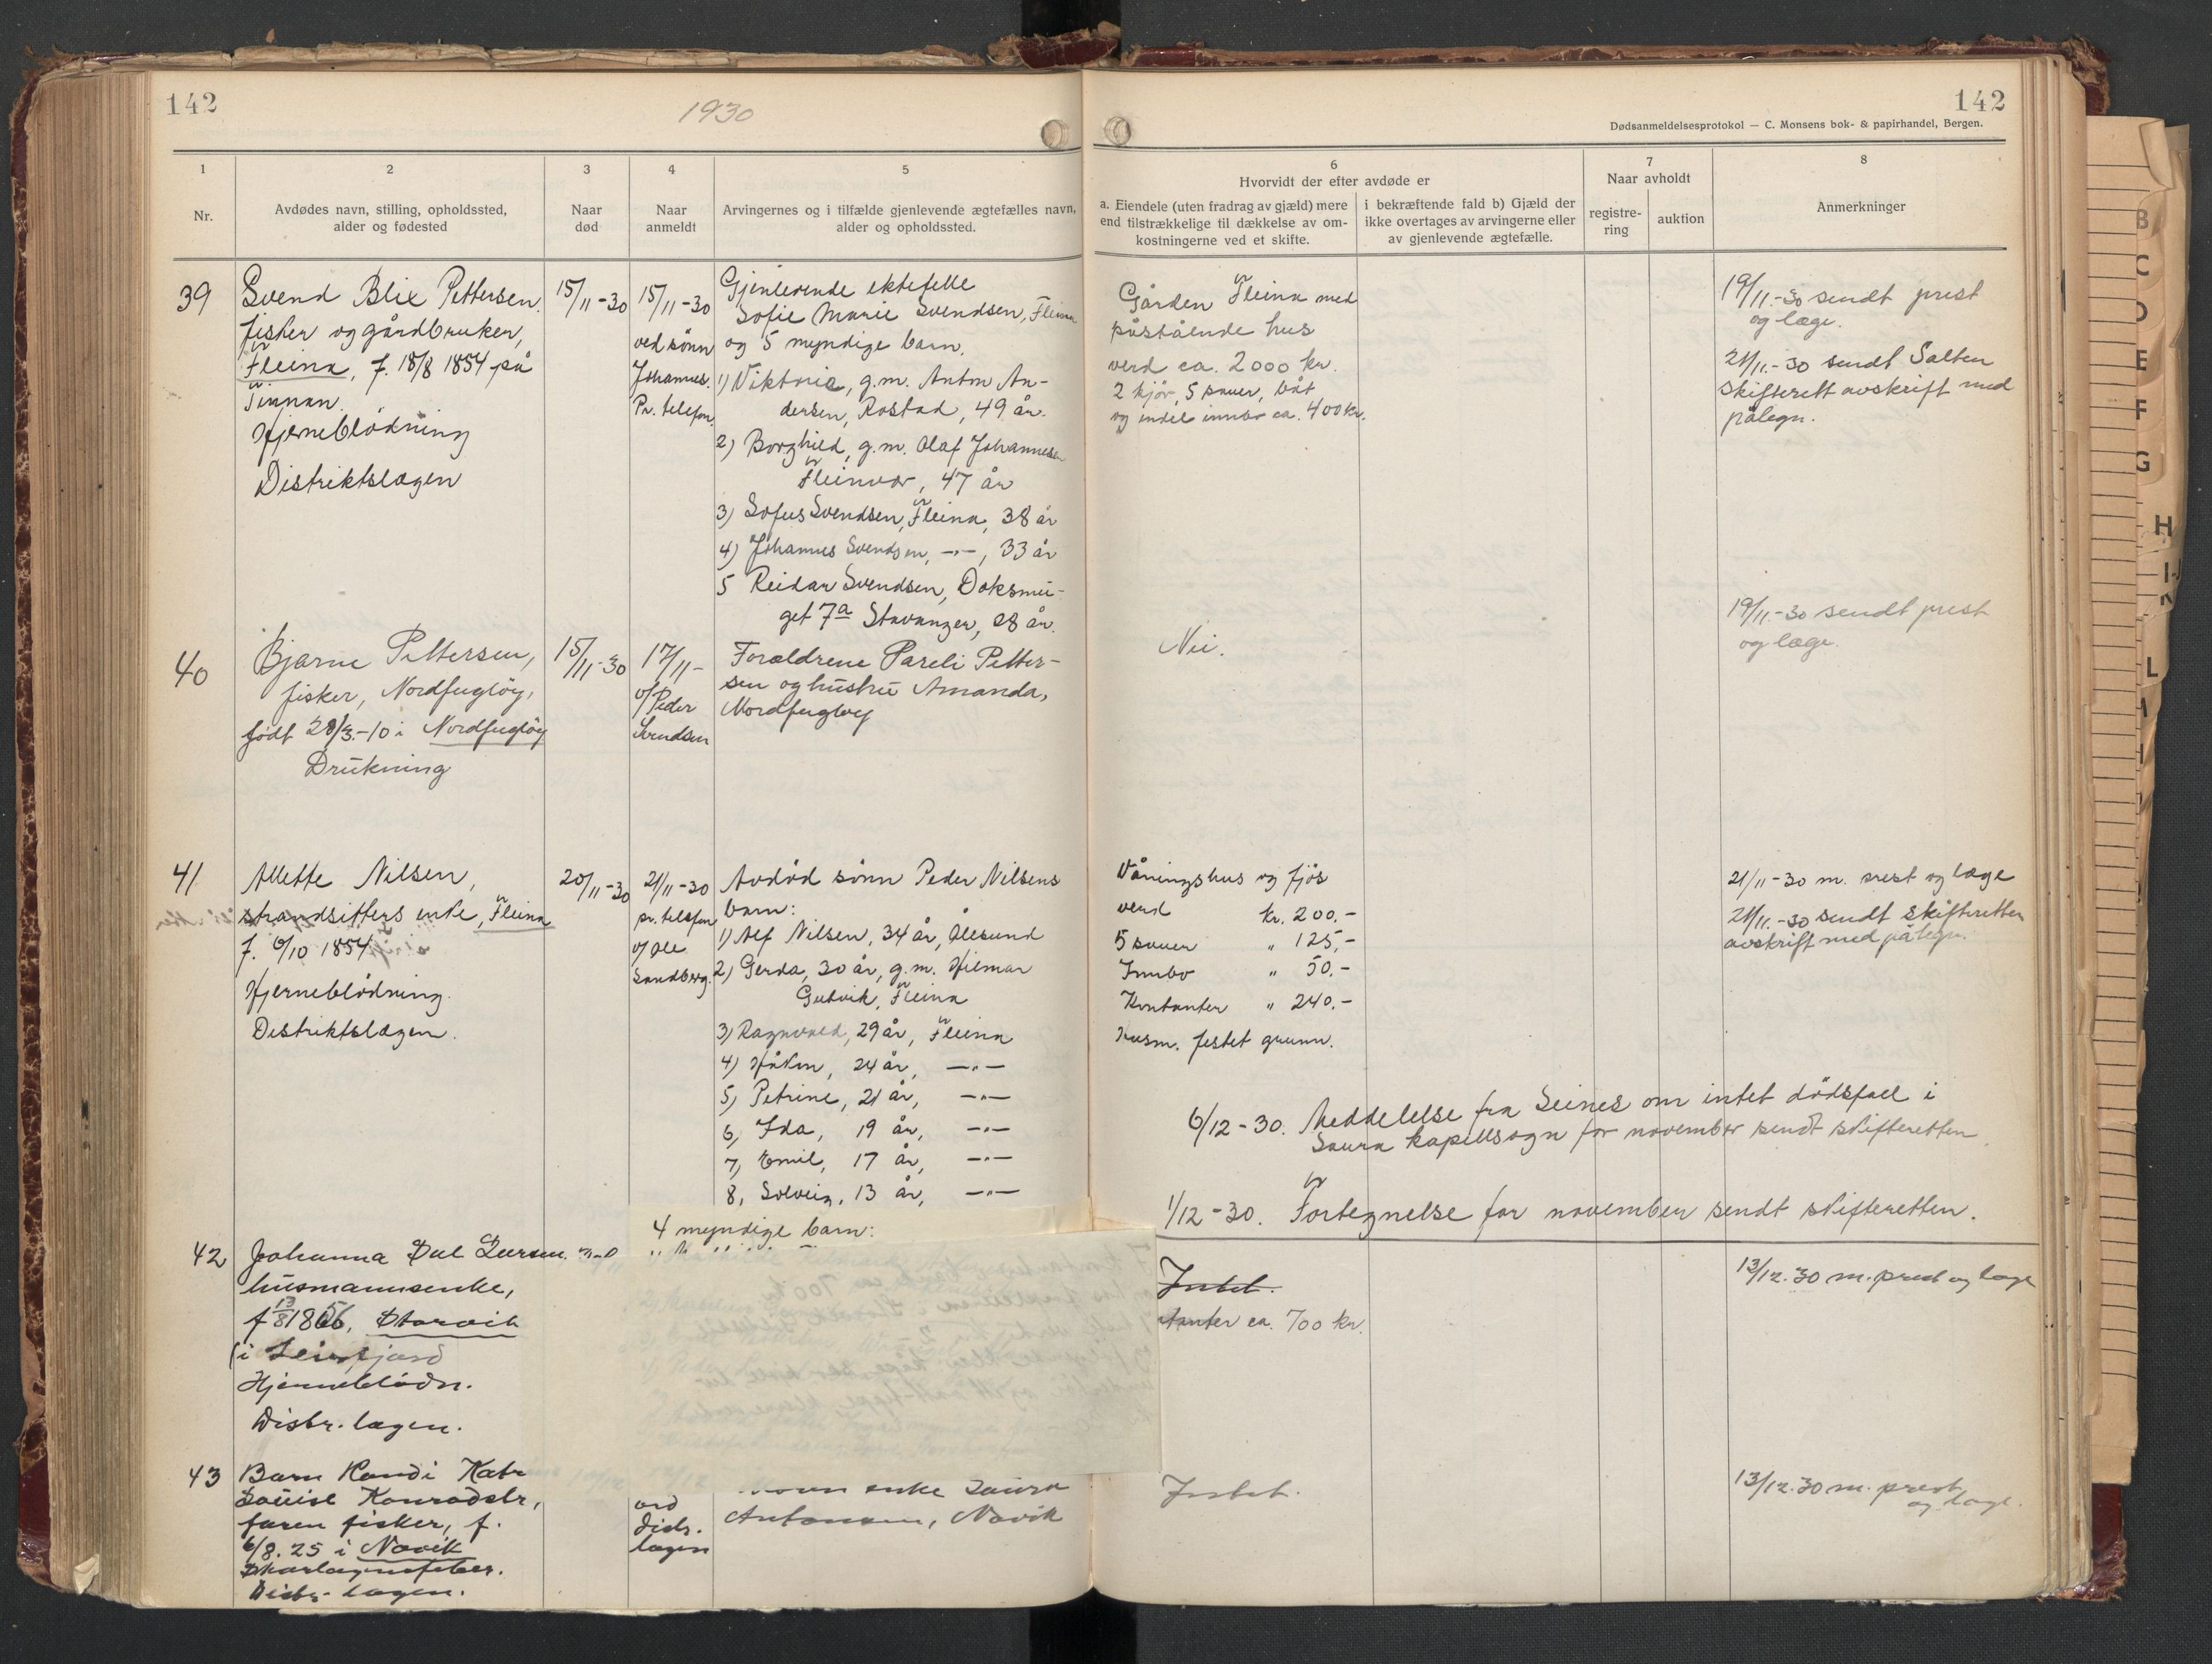 142
1930
142
Dødsanmeldelsesprotokol — C. Monsens bok- & papirhandel, Bergen.
1
Nr.
2
Avdødes navn, stilling, opholdssted,
alder og fødested
3
Naar
død
4
Naar
anmeldt
5
Arvingernes og i tilfælde gjenlevende ægtefælles navn,
alder og opholdssted.
6
Hvorvidt der efter avdøde er
a. Eiendele (uten fradrag av gjæld) mere
end tilstrækkelige til dækkelse av om-
kostningerne ved et skifte.
i bekræftende fald b) Gjæld der
ikke overtages av arvingerne eller
av gjenlevende ægtefælle.
7
Naar avholdt
registre-
ring
auktion
8
Anmerkninger
39
Svend Blix Pettersen.
fisker og gårdbruker,
Fleina, f. 18/8 1854 på
Hjerneblödning
Distriktslægen
15/11-30
15/11-30
ved sönn
Johannes.
Pr. telefon.
Gjenlevende ektefelle
Sofie Marie Svendsen, Fleina
og 5 myndige barn.
1) Viktoria, g.m. Anton An-
dersen, Rostad, 49 år.
2) Borghild, g.m. Olaf Johannesen
Fleinvær, 47 år
3) Sofus Svendsen, Fleina, 38 år
4) Johannes Svendsen, -"-, 33 år
5 Reidar Svendsen, Doksmu-
get 7a Stavanger, 28 år.
Gården Fleina med
påstående hus
verd ca. 2000 kr.
2 kjör, 5 sauer, båt
og endel innbo ca. 400 kr.
19/11.-30 sendt prest
og læge.
21/11.-30 sendt Salten
skifterett avskrift med
pålegn.
40
Bjarne Pettersen,
fisker, Nordfugløy,
født 28/3.-10 i Nordfugløy
Drukning
15/11-30
17/11-
v/Peder
Svendsen
Foreldrene Pareli Petter-
sen og hustru Amanda,
Nordfugløy
Nei.
19/11.-30 sendt prest
og læge.
41
Allette Nilsen,
strandsitters enke, Fleina
f. 6/10 1854
Hjerneblödning.
Distriktslægen.
20/11-30
21/11-30
pr. telefon
v/ Ole
Sandberg.
Avdöd sönn Peder Nilsens
barn:
1) Alf Nilsen, 34 år, Ålesund
2) Gerda, 30 år, g.m. Hilmar
Gutvik, Fleina
3) Ragnvald, 29 år, Fleina
4) Håkon, 24 år, -"-
5, Petrine, 21 år, -"-
6, Ida, 19 år, -"-
7, Emil, 17 år, -"-
8, Solveig, 13 år, -"-
Våningshus og fjös
verd kr. 200.-
5 sauer " 125,-
Innbo " 50.-
Kontanter " 240.-
Husm. festet grunn.
21/11-30 m. prest og læge
21/11.-30 sendt skifteretten
avskrift med pålegn.
6/12-30. Meddelelse fra Seines om intet dödsfall i
Saura kapellsogn for november sendt skifteretten.
1/12-30. Fortegnelse for november sendt skifteretten.
4 myndige barn:
42
Johanna Dal Larsen.
husmannsenke,
f 13/8 1856, Storvik
Hjerneblödn.
Distr. lægen.
Intet.
ntanter ca. 700 kr.
13/12.30 m. prest og læge
43
Barn Randi Katr
Louise Konradsdtr,
faren fisker, f.
6/8.25 i Novik
Skarlagensfeber.
Distr. lægen.
ved
distr.
lægen
enke Laura
Antonsen, Novik
Intet.
13/12.30 m. prest
og læge.